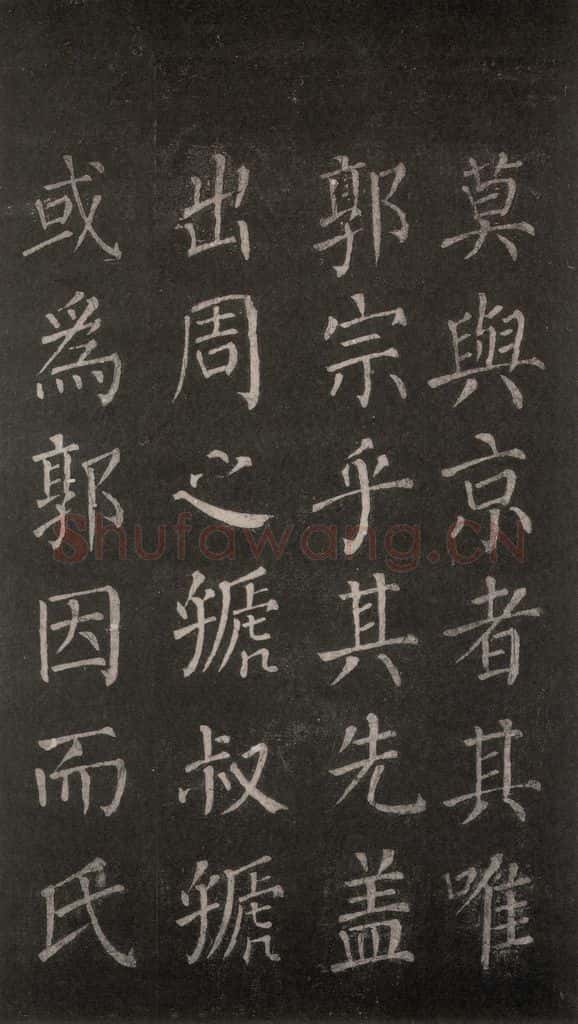 莫與京者其唯
郭宗乎其先盖
出周之虢叔虢
或為郭因而氏
Shufawang.CN